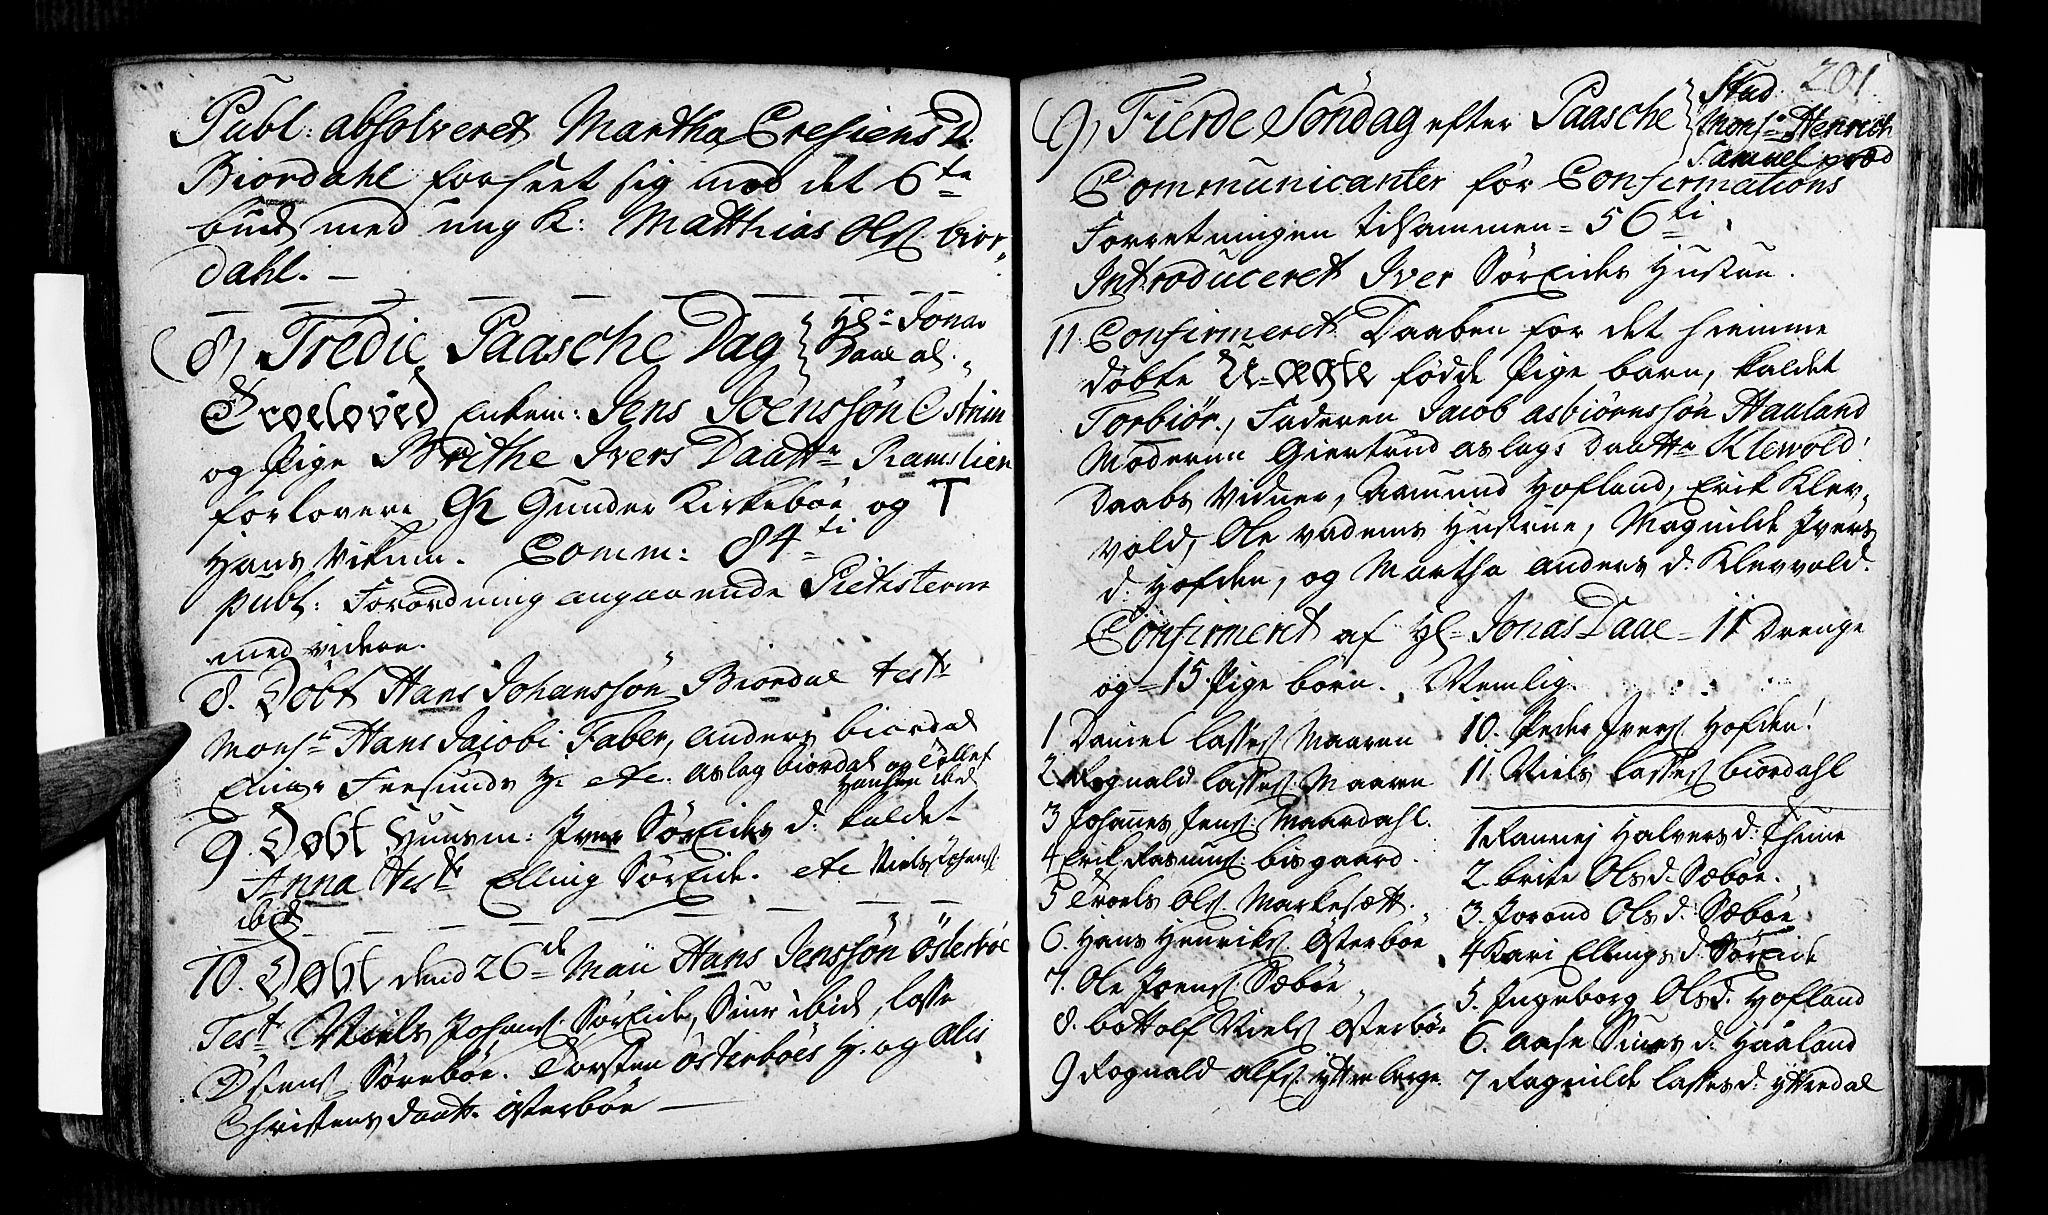 Publ: absolveret Martha Cresiens D.
Biordahl forseet sig med det 6te
bud med ung K: Matthias Ols. bior
dahl. —
8, Tredie Paasche Dag Hr. Jonas
Daae al.
Troeloved Enkem: Jens Joensøn Ostrim
og Pige Brithe Ivers Daattr Ramslien
forlovere Gunder Kirkeboe og T
Hans Vikum. Comm: 84ti
publ: Forordning angaaende Pietisterne
med videre.
8. Døbt Hans Johanssøn Biordal test:
Monsr Hans Jacobi Faber, anders biordal
H. etc. aslag biordal og Tollef
Hansen ibid
9. Døbt Huusm: Iver Søreides d: kaldet
Anna test: Elling Søreide. etc Niels Johans.
ibid
10. Døbt dend 26de Maii Hans Jenssøn Østerbøe
Test: Niels Johans. Søreide, Siur ibid, lasse
Østens. Sørebøe. Torsten østerbøes H. og alis
Christens daatt. østerbøe —
201.
9, Fierde Søndag efter Paasche Stud.
Monsr Henrich
Samuel præd
Communicanter før Confirmations
Forretningen tilsammen = 56ti
Introduceret Iver Søreides Hustrue.
11. Confirmeret Daaben for det hiemme
døbte U-ægte fødde Pige barn, kaldet
Torbiør, Faderen Jacob asbiørnssøn Hauland
Moderen Giertrud aslags Daattr Klewold
Daabs Vidner, Aamund Hofland, Erik Klev,
vold, Ole vadems Hustrue, Magnilde Ivers
d: Hofden, og Martha anders d: Klevvold.
Confirmeret af Hr Jonas Daae = 11 Drenge
og = 15. Pige børn. Nemlig.
1 Daniel lasses Maaren
2 Rognald lasses. Maaren
3 Johannes Jens. Maardahl.
4 Erik Rasmus: bisgaard.
5 Troels Ols. Markesætt.
6. Hans Henriks. Østerbøe
7. Ole Joens. Sæbøe
8. bottolf Niels. Østerbøe
9 Rognald olfs. ytterberge
10. Peder Ivers. Hofden!
11. Niels lasses biordahl
1. Rannej Halvers d: Theine
2. brite Ols d: Sæbøe.
3. Jorand Ols d. Sæbøe
4. Kari Ellings d. Søreide
5. Ingeborg Ols d. Hofland
6. aase Siurs d: Haaland
7 Ragnilde lasses d: ytterdal